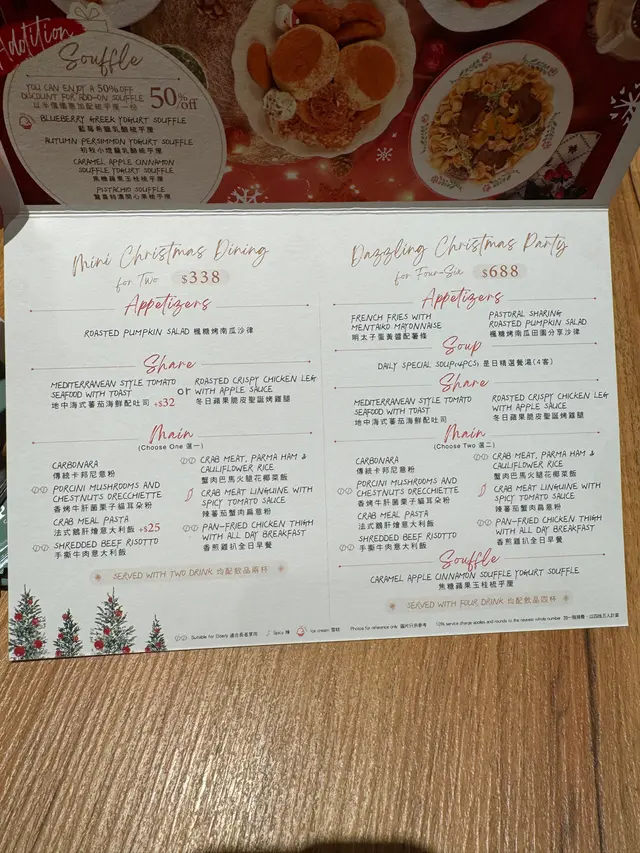 Addition
Souffle
YOU CAN ENJOY A 50% OFF
DISCOUNT FOR ADD-ON SOUFFLE
以半價優惠加配梳乎厘一份
50% off
BLUEBERRY GREEK YOGURT SOUFFLE
藍莓希臘乳酪梳乎厘
AUTUMN PERSIMMON YOGURT SOUFFLE
初秋小燈籠乳酪梳乎厘
CARAMEL APPLE CINNAMON
SOUFFLE YOGURT SOUFFLE
焦糖蘋果玉桂梳乎厘
PISTACHIO SOUFFLE
開心果梳乎厘
Mini Christmas Dining
for Two $338
Appetizers
ROASTED PUMPKIN SALAD 楓糖烤南瓜沙律
Share
MEDITERRANEAN STYLE TOMATO
SEAFOOD WITH TOAST
地中海式蕃茄海鮮配吐司 +$32
or
ROASTED CRISPY CHICKEN LEG
WITH APPLE SAUCE
冬日蘋果脆皮聖誕烤雞腿
Main
(Choose One 選一)
CARBONARA
傳統卡邦尼意粉
PORCINI MUSHROOMS AND
CHESTNUTS ORECCHIETTE
香烤牛肝菌栗子貓耳朵粉
CRAB MEAL PASTA
法式鵝肝燴意大利飯 +$25
SHREDDED BEEF RISOTTO
手撕牛肉意大利飯
CRAB MEAT, PARMA HAM &
CAULIFLOWER RICE
蟹肉巴馬火腿花椰菜飯
CRAB MEAT LINGUINE WITH
SPICY TOMATO SAUCE
辣蕃茄蟹肉扁意粉
PAN-FRIED CHICKEN THIGH
WITH ALL DAY BREAKFAST
香煎雞扒全日早餐
SERVED WITH TWO DRINK 均配飲品兩杯
Dazzling Christmas Party
for Four-Six $688
Appetizers
FRENCH FRIES WITH
MENTAIKO MAYONNAISE
明太子蛋黃醬配薯條
PASTORAL SHARING
ROASTED PUMPKIN SALAD
楓糖烤南瓜田園分享沙律
Soup
DAILY SPECIAL SOUP(4PCS) 是日精選餐湯(4客)
Share
MEDITERRANEAN STYLE TOMATO
SEAFOOD WITH TOAST
地中海式蕃茄海鮮配吐司
ROASTED CRISPY CHICKEN LEG
WITH APPLE SAUCE
冬日蘋果脆皮聖誕烤雞腿
Main
(Choose Two 選二)
CARBONARA
傳統卡邦尼意粉
PORCINI MUSHROOMS AND
CHESTNUTS ORECCHIETTE
香烤牛肝菌栗子貓耳朵粉
CRAB MEAL PASTA
法式鵝肝燴意大利飯
SHREDDED BEEF RISOTTO
手撕牛肉意大利飯
CRAB MEAT, PARMA HAM &
CAULIFLOWER RICE
蟹肉巴馬火腿花椰菜飯
CRAB MEAT LINGUINE WITH
SPICY TOMATO SAUCE
辣蕃茄蟹肉扁意粉
PAN-FRIED CHICKEN THIGH
WITH ALL DAY BREAKFAST
香煎雞扒全日早餐
Souffle
CARAMEL APPLE CINNAMON SOUFFLE YOGURT SOUFFLE
焦糖蘋果玉桂梳乎厘
SERVED WITH FOUR DRINK 均配飲品四杯
Suitable for Elderly 適合長者享用 Spicy 辣 Ice cream 雪糕 Photos for reference only 圖片只供參考 10% service charge applies and rounds to the nearest whole number 加一服務費，以四捨五入計算